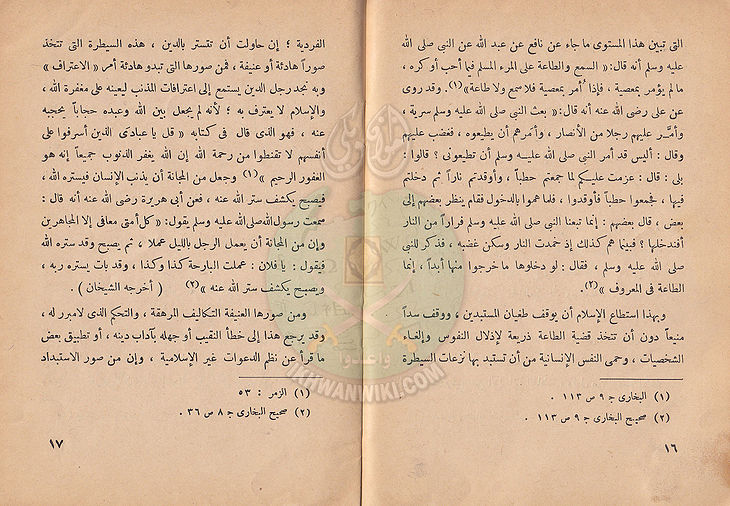 التى تبين هذا المستوى ما جاء عن نافع عن عبد الله عن النبى صلى الله
عليه وسلم أنه قال : « السمع والطاعة على المرء المسلم فيما أحب أو كره ،
ما لم يؤمر بمعصية ، فإذا أُمر بمعصية فلا سمع ولا طاعة » (١). وقد روى
عن على رضى الله عنه أنه قال : « بعث النبى صلى الله عليه وسلم سرية ،
وأمَّر عليهم رجلا من الأنصار ، وأمرهم أن يطيعوه ، فغضب عليهم
وقال : أليس قد أمر النبى صلى الله عليه وسلم أن تطيعونى ؟ قالوا :
بلى : قال : عزمت عليكم لما جمعتم حطباً ، وأوقدتم ناراً ثم دخلتم
فيها ، فجمعوا حطباً فأوقدوا ، فلما هموا بالدخول فقام ينظر بعضهم إلى
بعض ، قال بعضهم : إنما تبعنا النبى صلى الله عليه وسلم فراراً من النار
أفندخلها ؟ فبينما هم كذلك إذ خمدت النار وسكن غضبه ، فذكر للنبى
صلى الله عليه وسلم ، فقال : لو دخلوها ما خرجوا منها أبداً ، إنما
الطاعة فى المعروف » (٢).
وبهذا استطاع الإسلام أن يوقف طغيان المستبدين ، ووقف سداً
منيعاً دون أن تتخذ قضية الطاعة ذريعة لإذلال النفوس وإلغاء
الشخصيات ، وحمى النفس الإنسانية من أن تستبد بها نزعات السيطرة
(١) البخارى ج ٩ ص ١١٣ .
(٢) صحيح البخارى ج ٩ ص ١١٣ .
١٦
الفردية ؛ إن حاولت أن تتستر بالدين ، هذه السيطرة التى تتخذ
صوراً هادئة أو عنيفة ، فمن صورها التى تبدو هادئة أمر « الاعتراف »
وبه نجد رجل الدين يستمع إلى إعترافات المذنب ليعينه على مغفرة الله ،
والإسلام لا يعترف به ؛ لأنه لم يجعل بين الله وعبده حجاباً يحجبه
عنه ، فهو الذى قال فى كتابه « قل يا عبادى الذين أسرفوا على
أنفسهم لا تقنطوا من رحمة الله إن الله يغفر الذنوب جميعاً إنه هو
الغفور الرحيم » (١) وجعل من المجانة أن يذنب الإنسان فيستره الله ،
فيصبح يكشف ستر الله عنه ، فعن أبى هريرة رضى الله عنه أنه قال :
سمعت رسول الله صلى الله عليه وسلم يقول : « كل أمتى معافى إلا المجاهرين
وإن من المجانة أن يعمل الرجل بالليل عملا ، ثم يصبح وقد ستره الله
فيقول : يا فلان : عملت البارحة كذا وكذا ، وقد بات يستره ربه ،
ويصبح يكشف ستر الله عنه » (٢) ( أخرجه الشيخان ) .
ومن صورها العنيفة التكاليف المرهقة ، والتحكم الذى لا مبرر له ،
وقد يرجع هذا إلى خطأ النقيب أو جهله بآداب دينه ، أو تطبيق بعض
ما قرأ عن نظم الدعوات غير الإسلامية ، وإن من صور الاستبداد
(١) الزمر : ٥٣
(٢) صحيح البخارى ج ٨ ص ٣٦ .
١٧
وأعدوا
IKHWANWIKI.COM